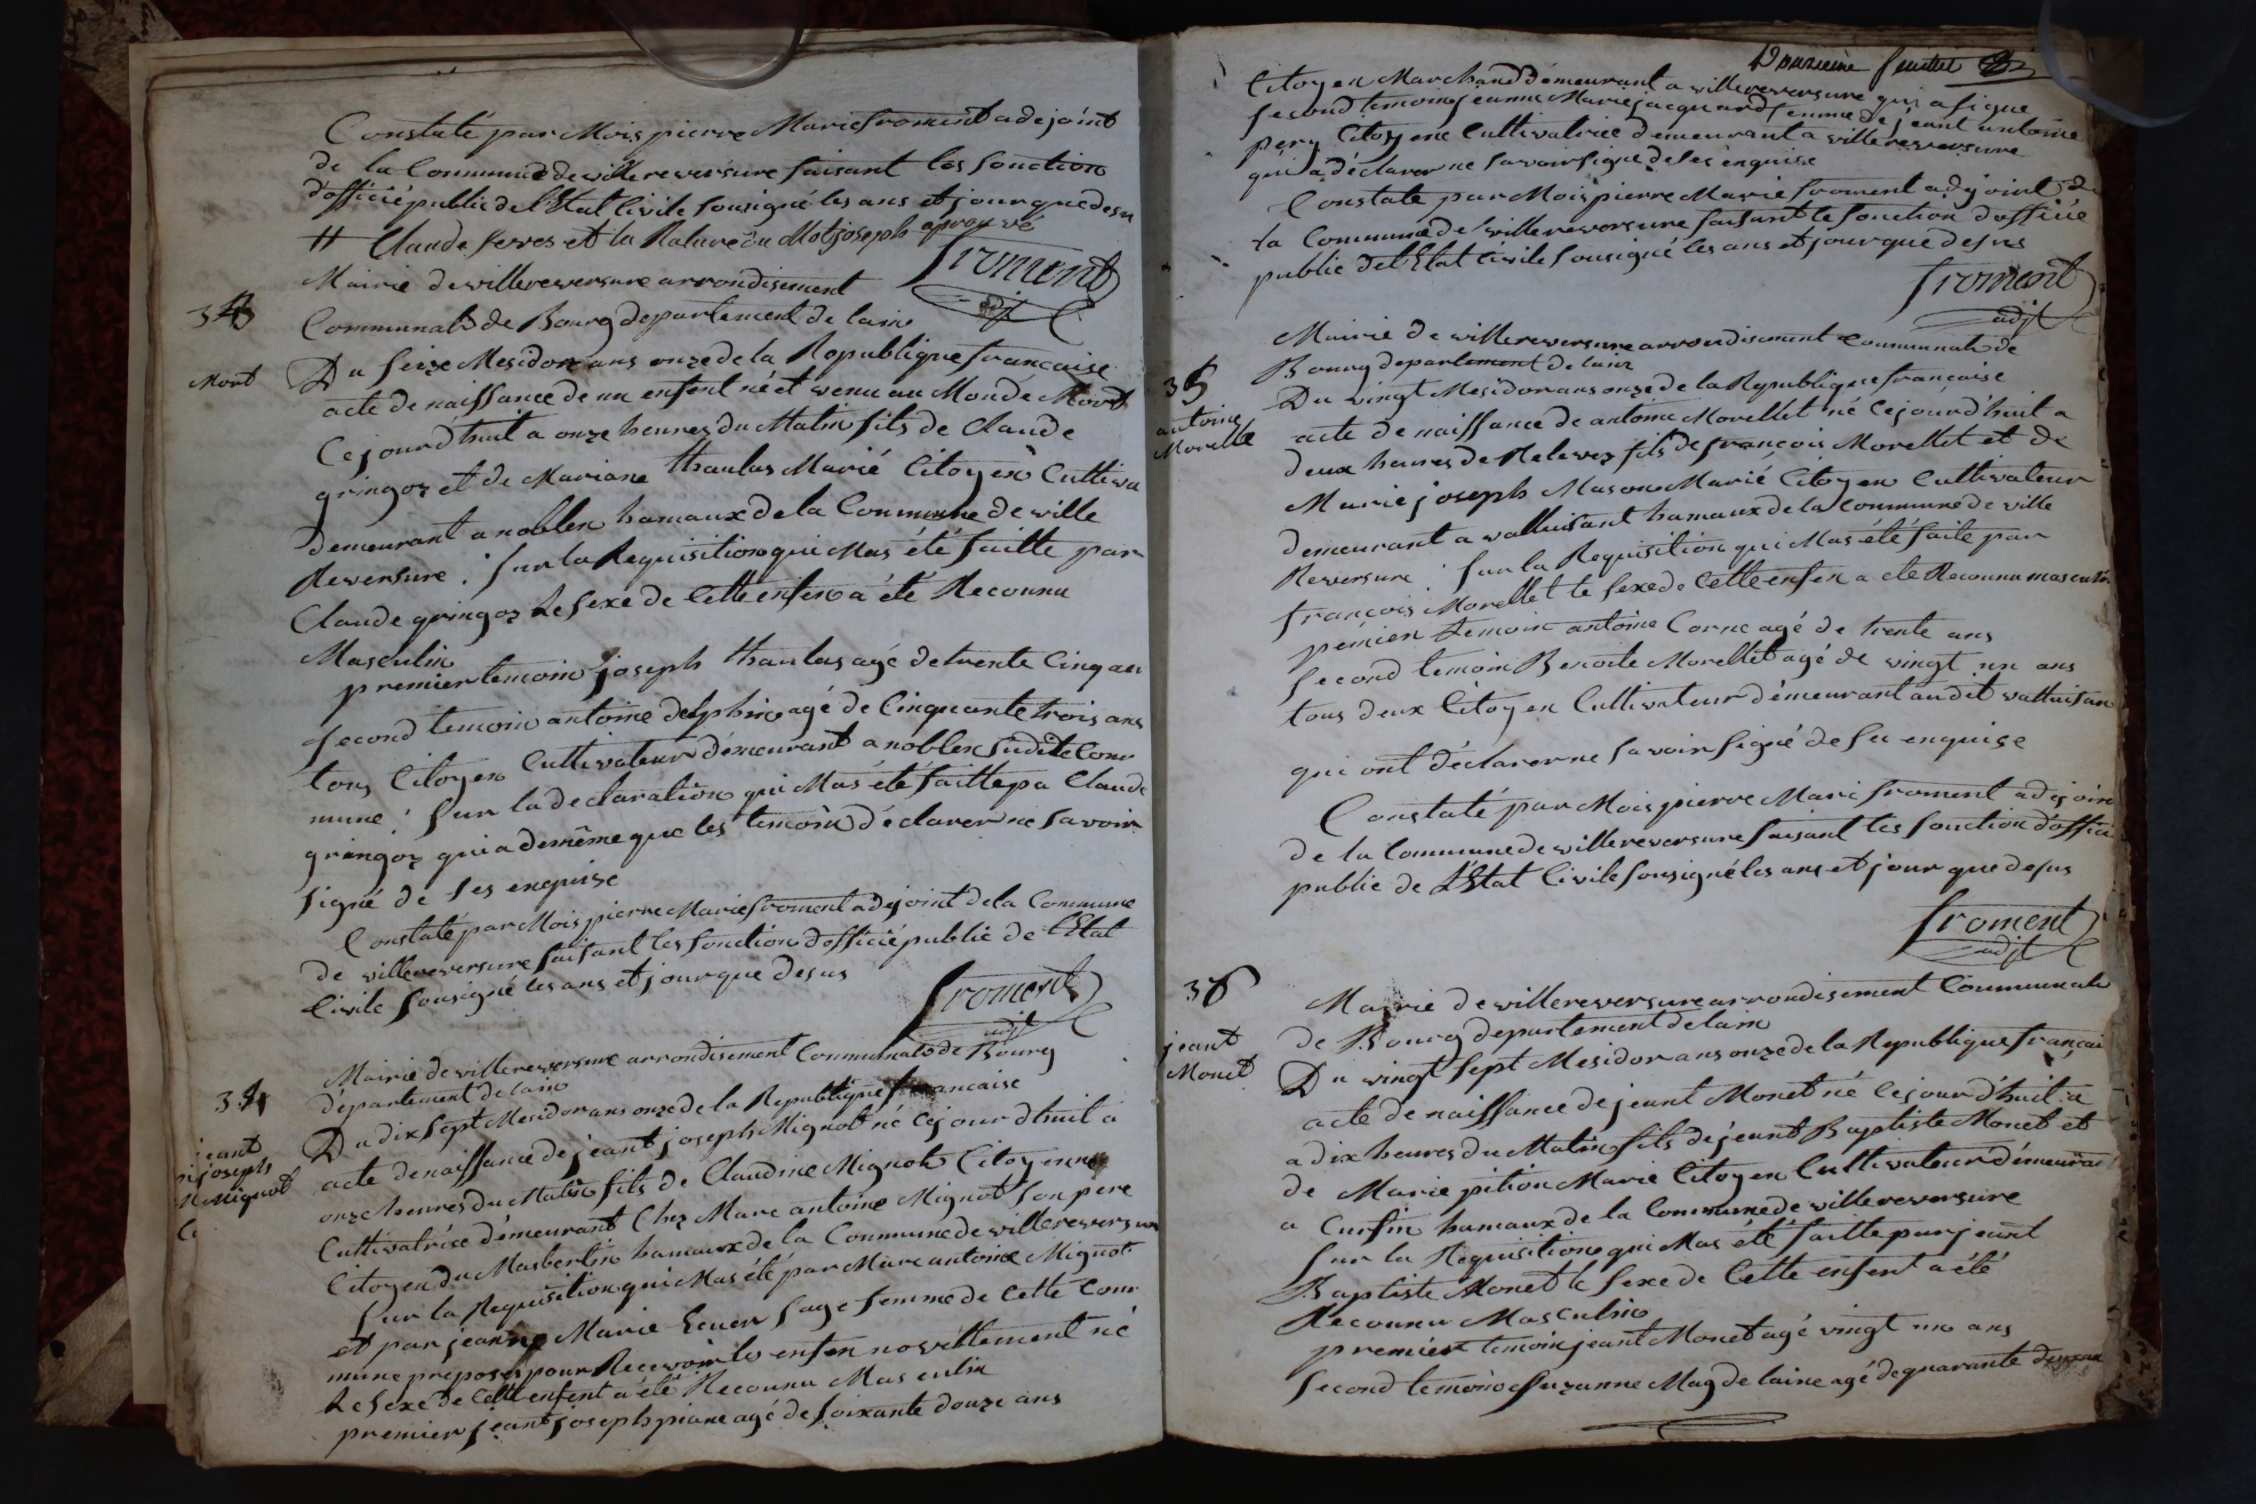 Constaté par Mois pierre Marie froment adejoint
de la Commune de villereversure faisant les fonction
d'officié public de l'Etat Civile sousigné les ans et jour que desu
# Claude serves et la Rature du Mot joseph aprouvé
froment
adjt
33
Mairie de villereversure arrondisement
Communale de Bourg departement de lain
Mort
Du seize Mesidor ans onze de la Republique francaise
acte de naissance de un enfent né et venu au Monde Mort
Cejourd'huit a onze heures du Matin fils de Claude
gringoz et de Mariane thaulas Marié Citoyen Cultiva
demeurant a noblen hamaux de la Commune de ville
Reversure. sur la Requisition qui Mas été faitte par
Claude gringoz Le sexe de Cette enfen a été Reconnu
Masculin
premier temoin joseph thaulas agé de trente Cinq an
second temoin antoine delphin agé de Cinquante trois ans
tous Citoyen Cultivateur démeurant a noblen sudite Com
mune. sur la declaration qui Mas été faitte pa Claude
gringoz qui a demême que les temoin déclarer ne savoir
signé de ses enquise
Constaté par Mois pierre Marie froment adejoint de la Commune
de villereversure faisant les fonction d'officié public de l'Etat
Civile sousigné les ans et jour que desus
froment
adjt
34
Mairie de villereversure arrondisement Communale de Bourg
département de lain
jeant
joseph
Mignot
Du dix sept Mesidor ans onze de la Republique francaise
acte de naissance de jeant joseph Mignot né Cejourdhuit a
onze heures du Matin fils de Claudine Mignot Citoyenne
Cultivatrice démeurant Chez Marc antoine Mignot son pere
Citoyen du Masbertin hamaux de la Commune de villereversure
sur la Requisition qui Mas été par Marc antoine Mignot
et par jeanne Marie sage femme de Cette Com
mune preposés pour Recevoir les enfen novellement né
Le Sexe de Cette enfent a été Reconnu Masculin
premier jeant joseph piane agé de soixante douze ans
Douzieme feuillet
Citoyen Marchand démeurant a villereversure qui a signe
second temoins jeanne Marie jacquard femme de jeant antoine
pery Citoyene Cultivatrice demeurant a villereversure
qui a déclarer ne savoir signe de ses enquise
Constaté par Mois pierre Marie froment adejoint de
la Commune de villereversure faisant le fonction d'officié
public de l'Etat Civile sousigné les ans et jour que desus
froment
adjt
35
Mairie de villereversure arrondisement Communale de
Bourg departement de lain
antoine
Morelle
Du vingt Mesidor ans onze de la Republique francaise
acte de naissance de antoine Morellet né Cejourd'huit a
deux heures de Relevez fils de françois Morellet et de
Marie joseph Mason Marié Citoyen Cultivateur
demeurant a valluisant hamaux de la Commune de ville
Reversure. sur la Requisition qui Mas été faite par
françois Morellet le sexe de Cette enfen a été Reconnu masculin
pémien temoin antoine Corne agé de trente ans
second temoin Benoite Morellet agé de vingt un ans
tous deux Citoyen Cultivateur démeurant audit valluisan
qui ont déclarer ne savoir signé de su enquise
Constaté par Mois pierre Mari froment adejoin
de la Commune de villereversure faisant les fonction d'offici
public de L'Etat Civile sousigné les ans et jour que desus
froment
adjt
36
Mairie de villereversure arrondisement Communale
de Bourg departement de lain
jeant
Monet
Du vingt sept Mesidor ans onze de la Republique françai
acte de naissance de jeant Monet né Cejourd'huit a
a dix heures du Matin fils de jeant Baptiste Monet et
de Marie pition Marie Citoyen Cultivateur démeurant
a Cursin hamaux de la Commune de villereversure
sur la Requisition qui Mas été faitte par jeant
Baptiste Monet le sexe de Cette enfent a été
Reconnu Masculin
premier temoin jeant Monet agé vingt un ans
second temoin Suzanne Magdelaine agé de quarante deux an